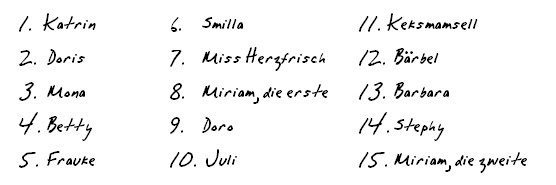 1. Katrin
2. Doris
3. Mona
4. Betty
5. Frauke
6. Smilla
7. Miss Herzfrisch
8. Miriam, die erste
9. Doro
10. Juli
11. Keksmamsell
12. Bärbel
13. Barbara
14. Stephy
15. Miriam, die zweite